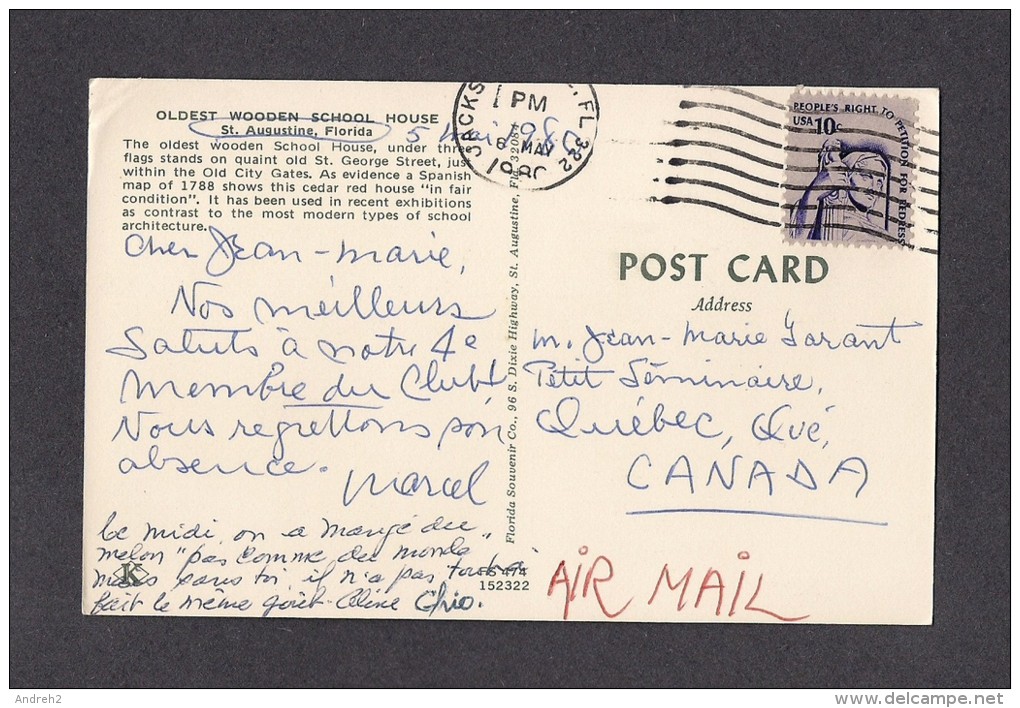 OLDEST WOODEN SCHOOL HOUSE
St. Augustine, Florida
5 mai 1980
The oldest wooden School House, under three
flags stands on quaint old St. George Street, just
within the Old City Gates. As evidence a Spanish
map of 1788 shows this cedar red house "in fair
condition". It has been used in recent exhibitions
as contrast to the most modern types of school
architecture.
Cher Jean-marie,
Nos meilleurs
Saluts à notre 4e
membre du Club!
Nous regrettons son
absence.
Marcel
Ce midi, on a mangé du
melon "pas comme du monde"
mais sans toi il n'a pas
fait le même goût. Céline
152322
Florida Souvenir Co., 96 S. Dixie Highway, St. Augustine, Fla. 32084
JACKS FL 322
PM
6 MAY
1980
PEOPLE'S RIGHT TO PETITION FOR REDRESS
USA 10c
POST CARD
Address
M. Jean-Marie Garant
Petit Séminaire,
Québec, Qué,
CANADA
AIR MAIL
K
Andreh2
www.delcampe.net